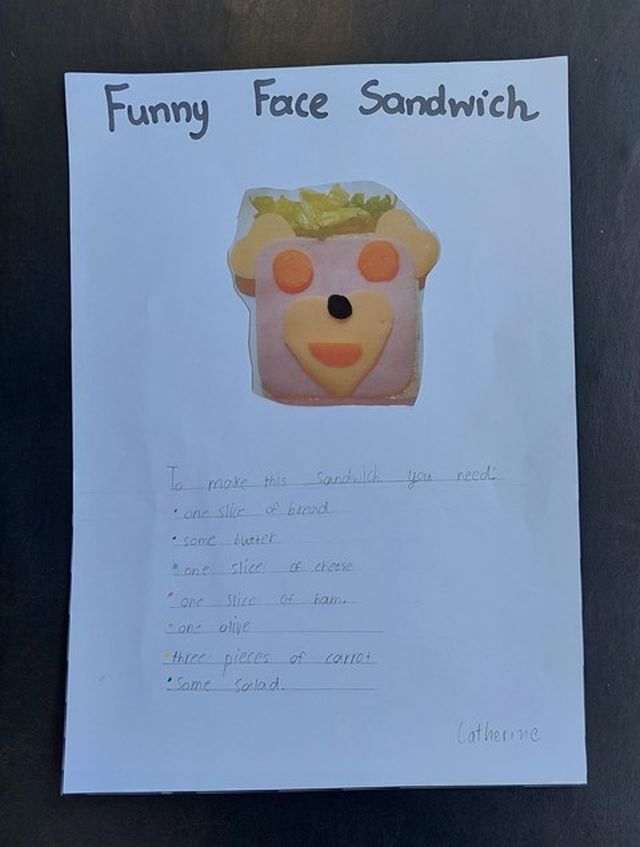 Funny Face Sandwich
To make this sandwich you need:
• one slice of bread
• some butter
• one slice of cheese
• one slice of ham.
• one olive
• three pieces of carrot
• some salad.
Catherine